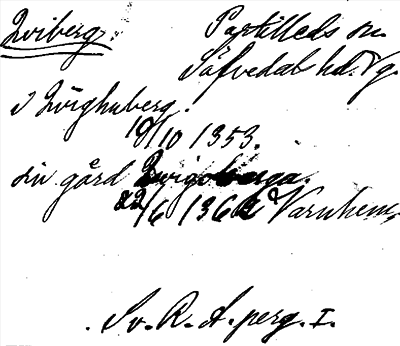 Qviberg. Partilleds sn.
Säfvedals hd. Vg.
i Qwighuberg.
19/10 1353.
sin gård
22/6 1362 Varnhem,
Sv. R. A. perg. I.